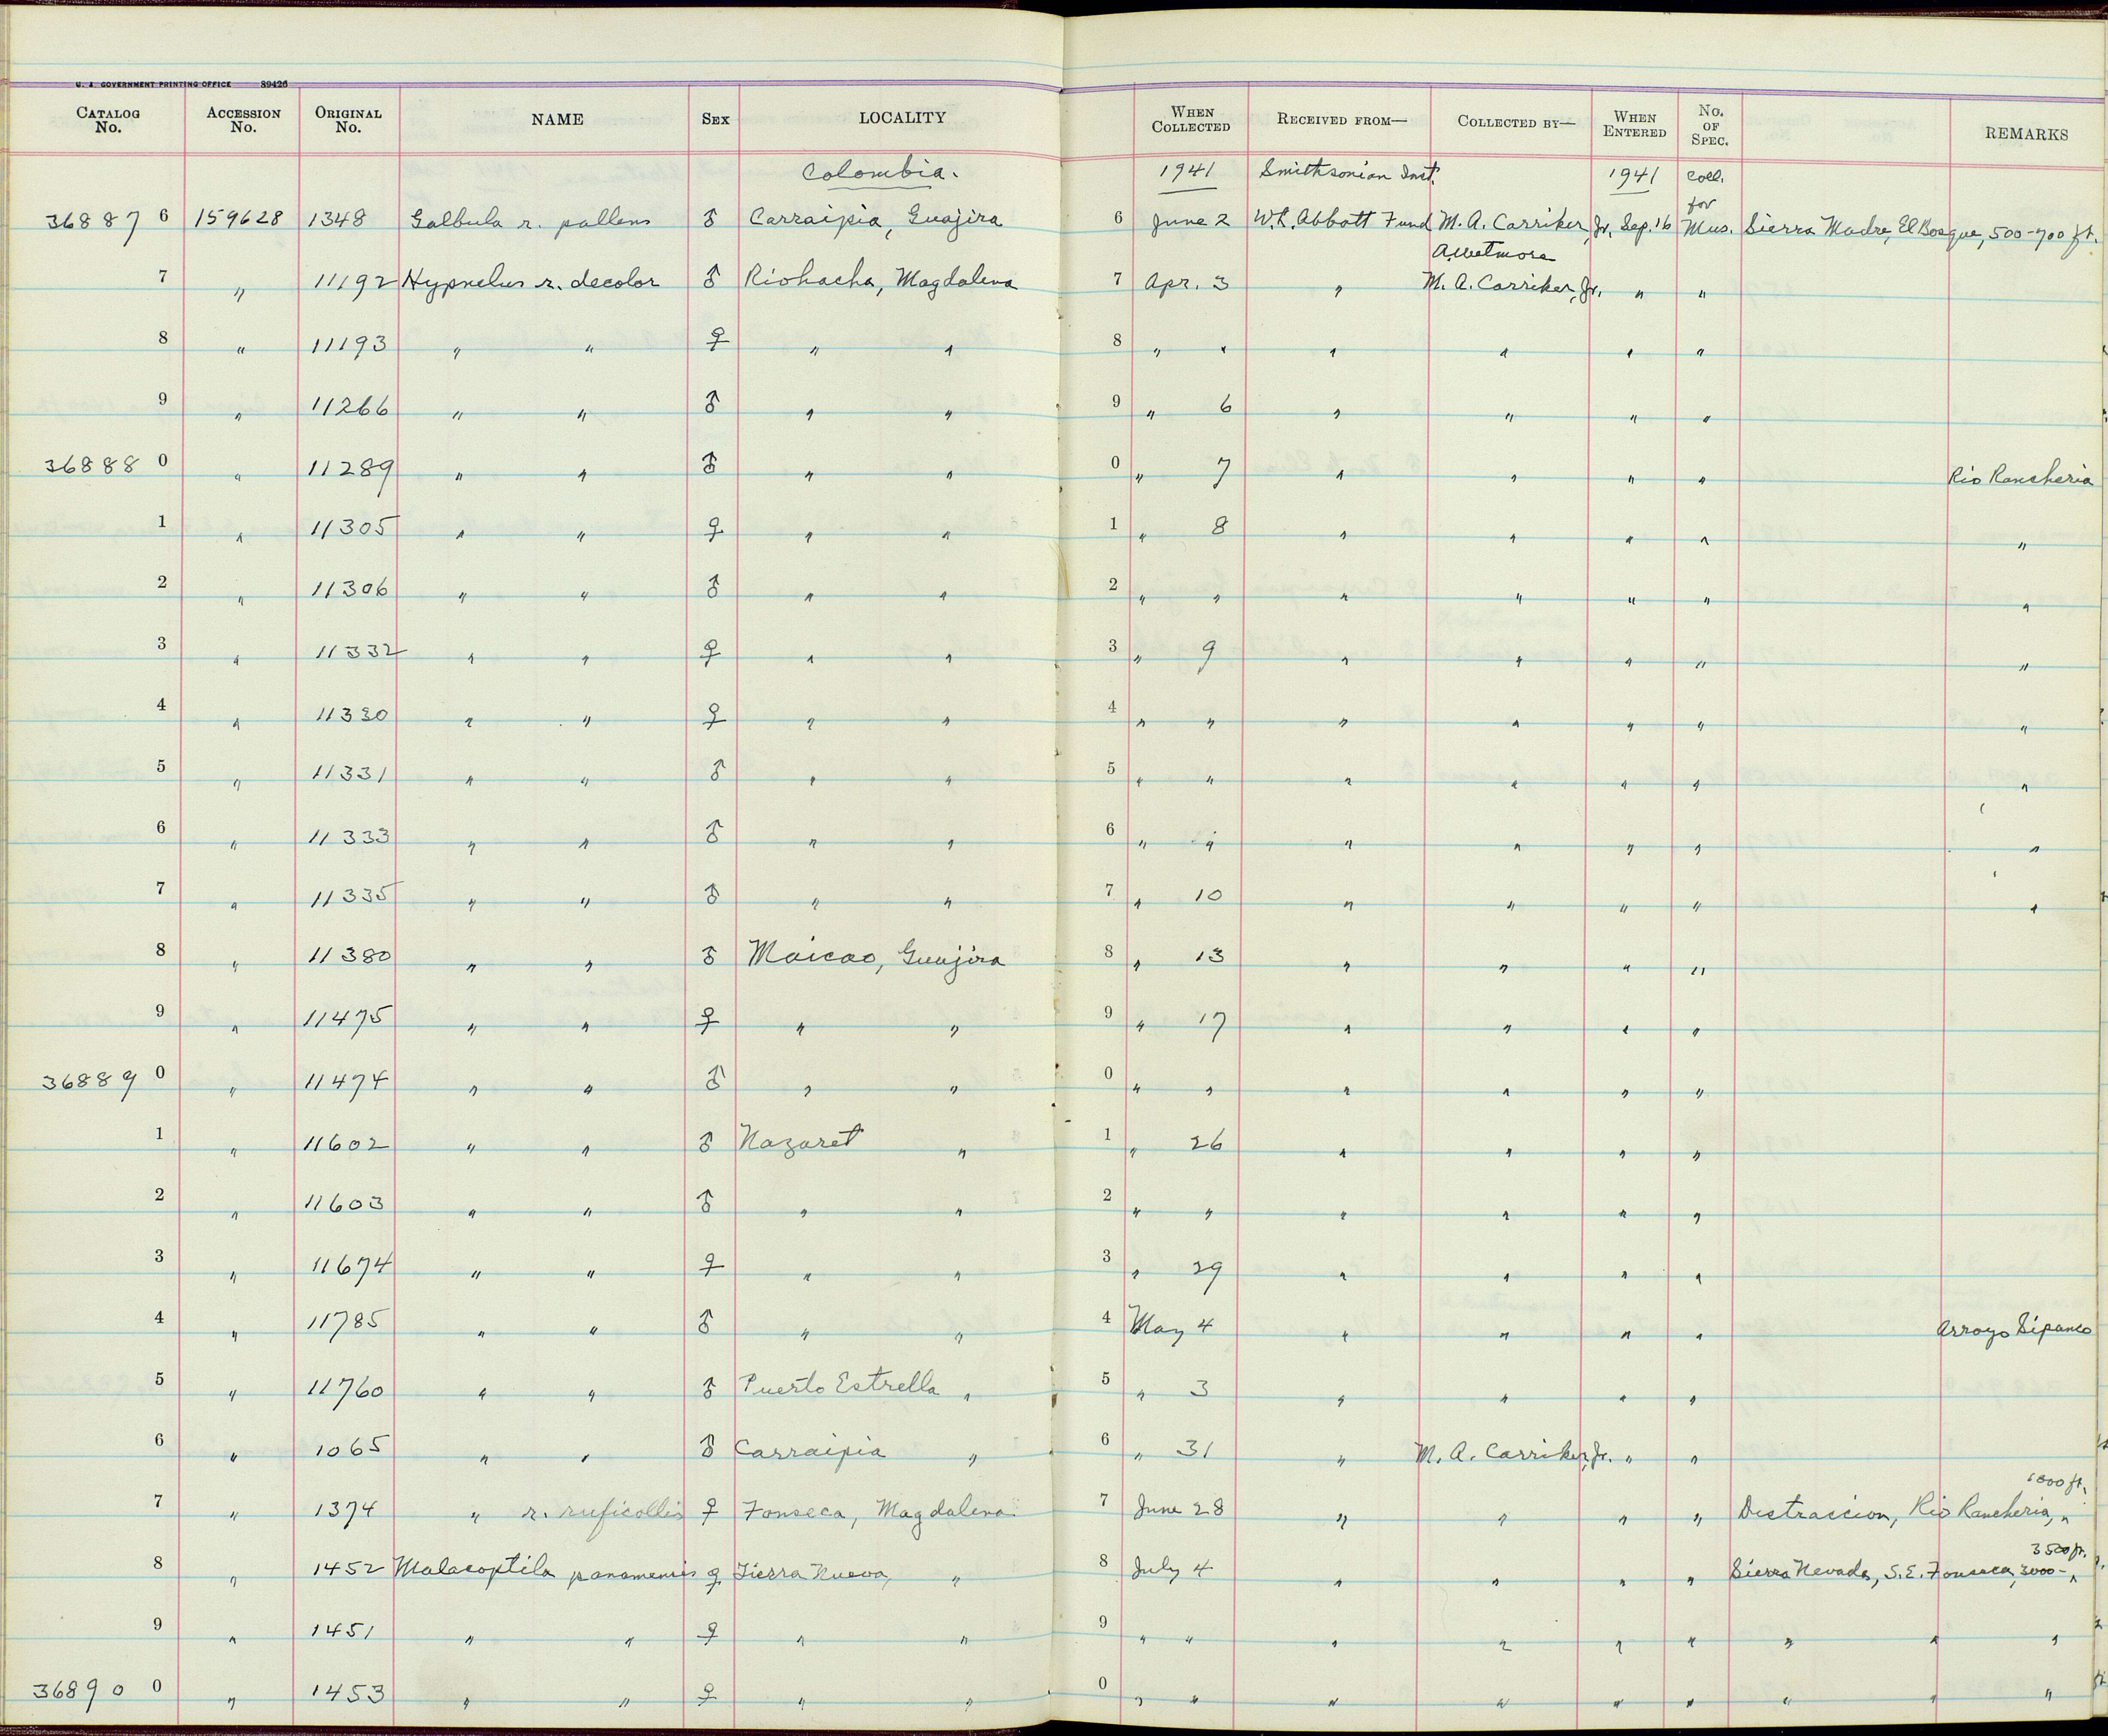 U. S. GOVERNMENT PRINTING OFFICE 89426
CATALOG No. ACCESSION No. ORIGINAL No. NAME SEX LOCALITY WHEN COLLECTED RECEIVED FROM— COLLECTED BY— WHEN ENTERED No. OF SPEC. REMARKS
Colombia. 1941 Smithsonian Inst. 1941 Coll. for
36887 6 159628 1348 Galbula r. pallens ♂ Carraipia, Guajira 6 June 2 W.L. Abbott Fund M. A. Carriker, Jr. Sep. 16 Mus. Sierra Madre, El Bosque, 500-700 ft.
A. Wetmore
7 " 11192 Hypnelus r. decolor ♂ Riohacha, Magdalena 7 Apr. 3 " M. A. Carriker, Jr. " "
8 " 11193 " " ♀ " " 8 " " " " " "
9 " 11266 " " ♂ " " 9 " 6 " " " "
36888 0 " 11289 " " ♂ " " 0 " 7 " " " " Rio Rancheria
1 " 11305 " " ♀ " " 1 " 8 " " " " "
2 " 11306 " " ♂ " " 2 " " " " " " "
3 " 11332 " " ♀ " " 3 " 9 " " " " "
4 " 11330 " " ♀ " " 4 " " " " " " "
5 " 11331 " " ♂ " " 5 " " " " " " "
6 " 11333 " " ♂ " " 6 " " " " " " "
7 " 11335 " " ♂ " " 7 " 10 " " " " "
8 " 11380 " " ♂ Maicao, Guajira 8 " 13 " " " "
9 " 11475 " " ♀ " " 9 " 17 " " " "
36889 0 " 11474 " " ♂ " " 0 " " " " " "
1 " 11602 " " ♂ Nazaret " 1 " 26 " " " "
2 " 11603 " " ♂ " " 2 " " " " " "
3 " 11674 " " ♀ " " 3 " 29 " " " "
4 " 11785 " " ♂ " " 4 May 4 " " " " Arroyo Sipanao
5 " 11760 " " ♂ Puerto Estrella " 5 " 3 " " " "
6 " 1065 " " ♂ Carraipia " 6 " 31 " M. A. Carriker, Jr. " "
7 " 1374 " r. ruficollis ♀ Fonseca, Magdalena 7 June 28 " " " " Distraccion, Rio Rancheria, 600 ft.
8 " 1452 Malacoptila panamensis ♀ Tierra Nueva, " 8 July 4 " " " " Sierra Nevada, S.E. Fonseca, 3000- 3500 ft.
9 " 1451 " " ♀ " " 9 " " " " " " " " "
36890 0 " 1453 " " ♀ " " 0 " " " " " " " " "